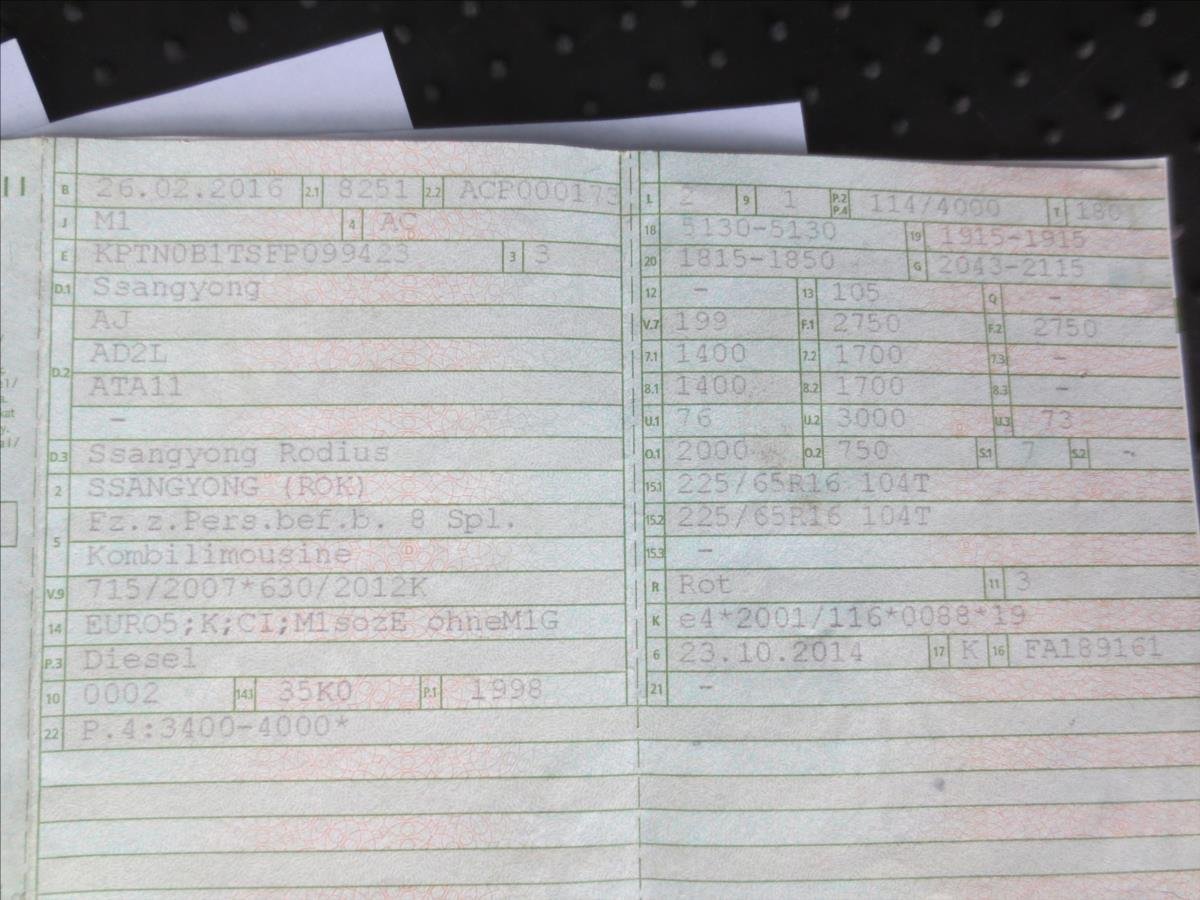 B 26.02.2016 2.1 8251 2.2 ACP000173
J M1 4 AC
E KPTN0B1TSFP099423 3 3
D.1 Ssangyong
AJ
D.2 AD2L
ATA11
-
D.3 Ssangyong Rodius
2 SSANGYONG (ROK)
5 Fz.z.Pers.bef.b. 8 Spl.
Kombilimousine
V.9 715/2007*630/2012K
14 EURO5;K;CI;M1sozE ohneM1G
P.3 Diesel
10 0002 14.1 35K0 P.1 1998
22 P.4:3400-4000*
L 2 9 1 P.2 P.4 114/4000 T 180
18 5130-5130 19 1915-1915
20 1815-1850 G 2043-2115
12 - 13 105 Q -
V.7 199 F.1 2750 F.2 2750
7.1 1400 7.2 1700 7.3 -
8.1 1400 8.2 1700 8.3 -
U.1 76 U.2 3000 U.3 73
O.1 2000 O.2 750 S.1 7 S.2 -
15.1 225/65R16 104T
15.2 225/65R16 104T
15.3 -
R Rot 11 3
K e4*2001/116*0088*19
6 23.10.2014 17 K 16 FA189161
21 -